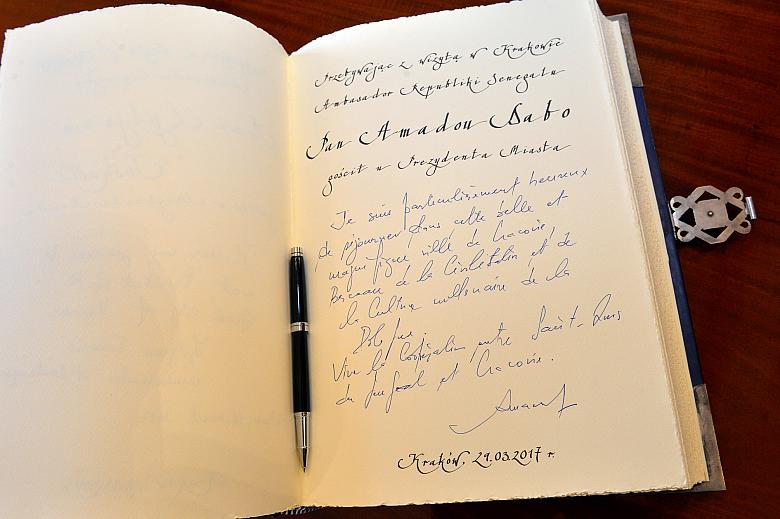 Przebywając z wizytą w Krakowie
Ambasador Republiki Senegalu
Pan Amadou Dabo
gościł u Prezydenta Miasta
Je suis particulièrement heureux
de séjourner dans cette belle et
magnifique ville de Cracovie,
Berceau de la Civilisation et de
la Culture millénaire de la
Pologne.
Vive la Coopération entre Saint-Louis
du Sénégal et Cracovie.
Kraków, 29.03.2017 r.